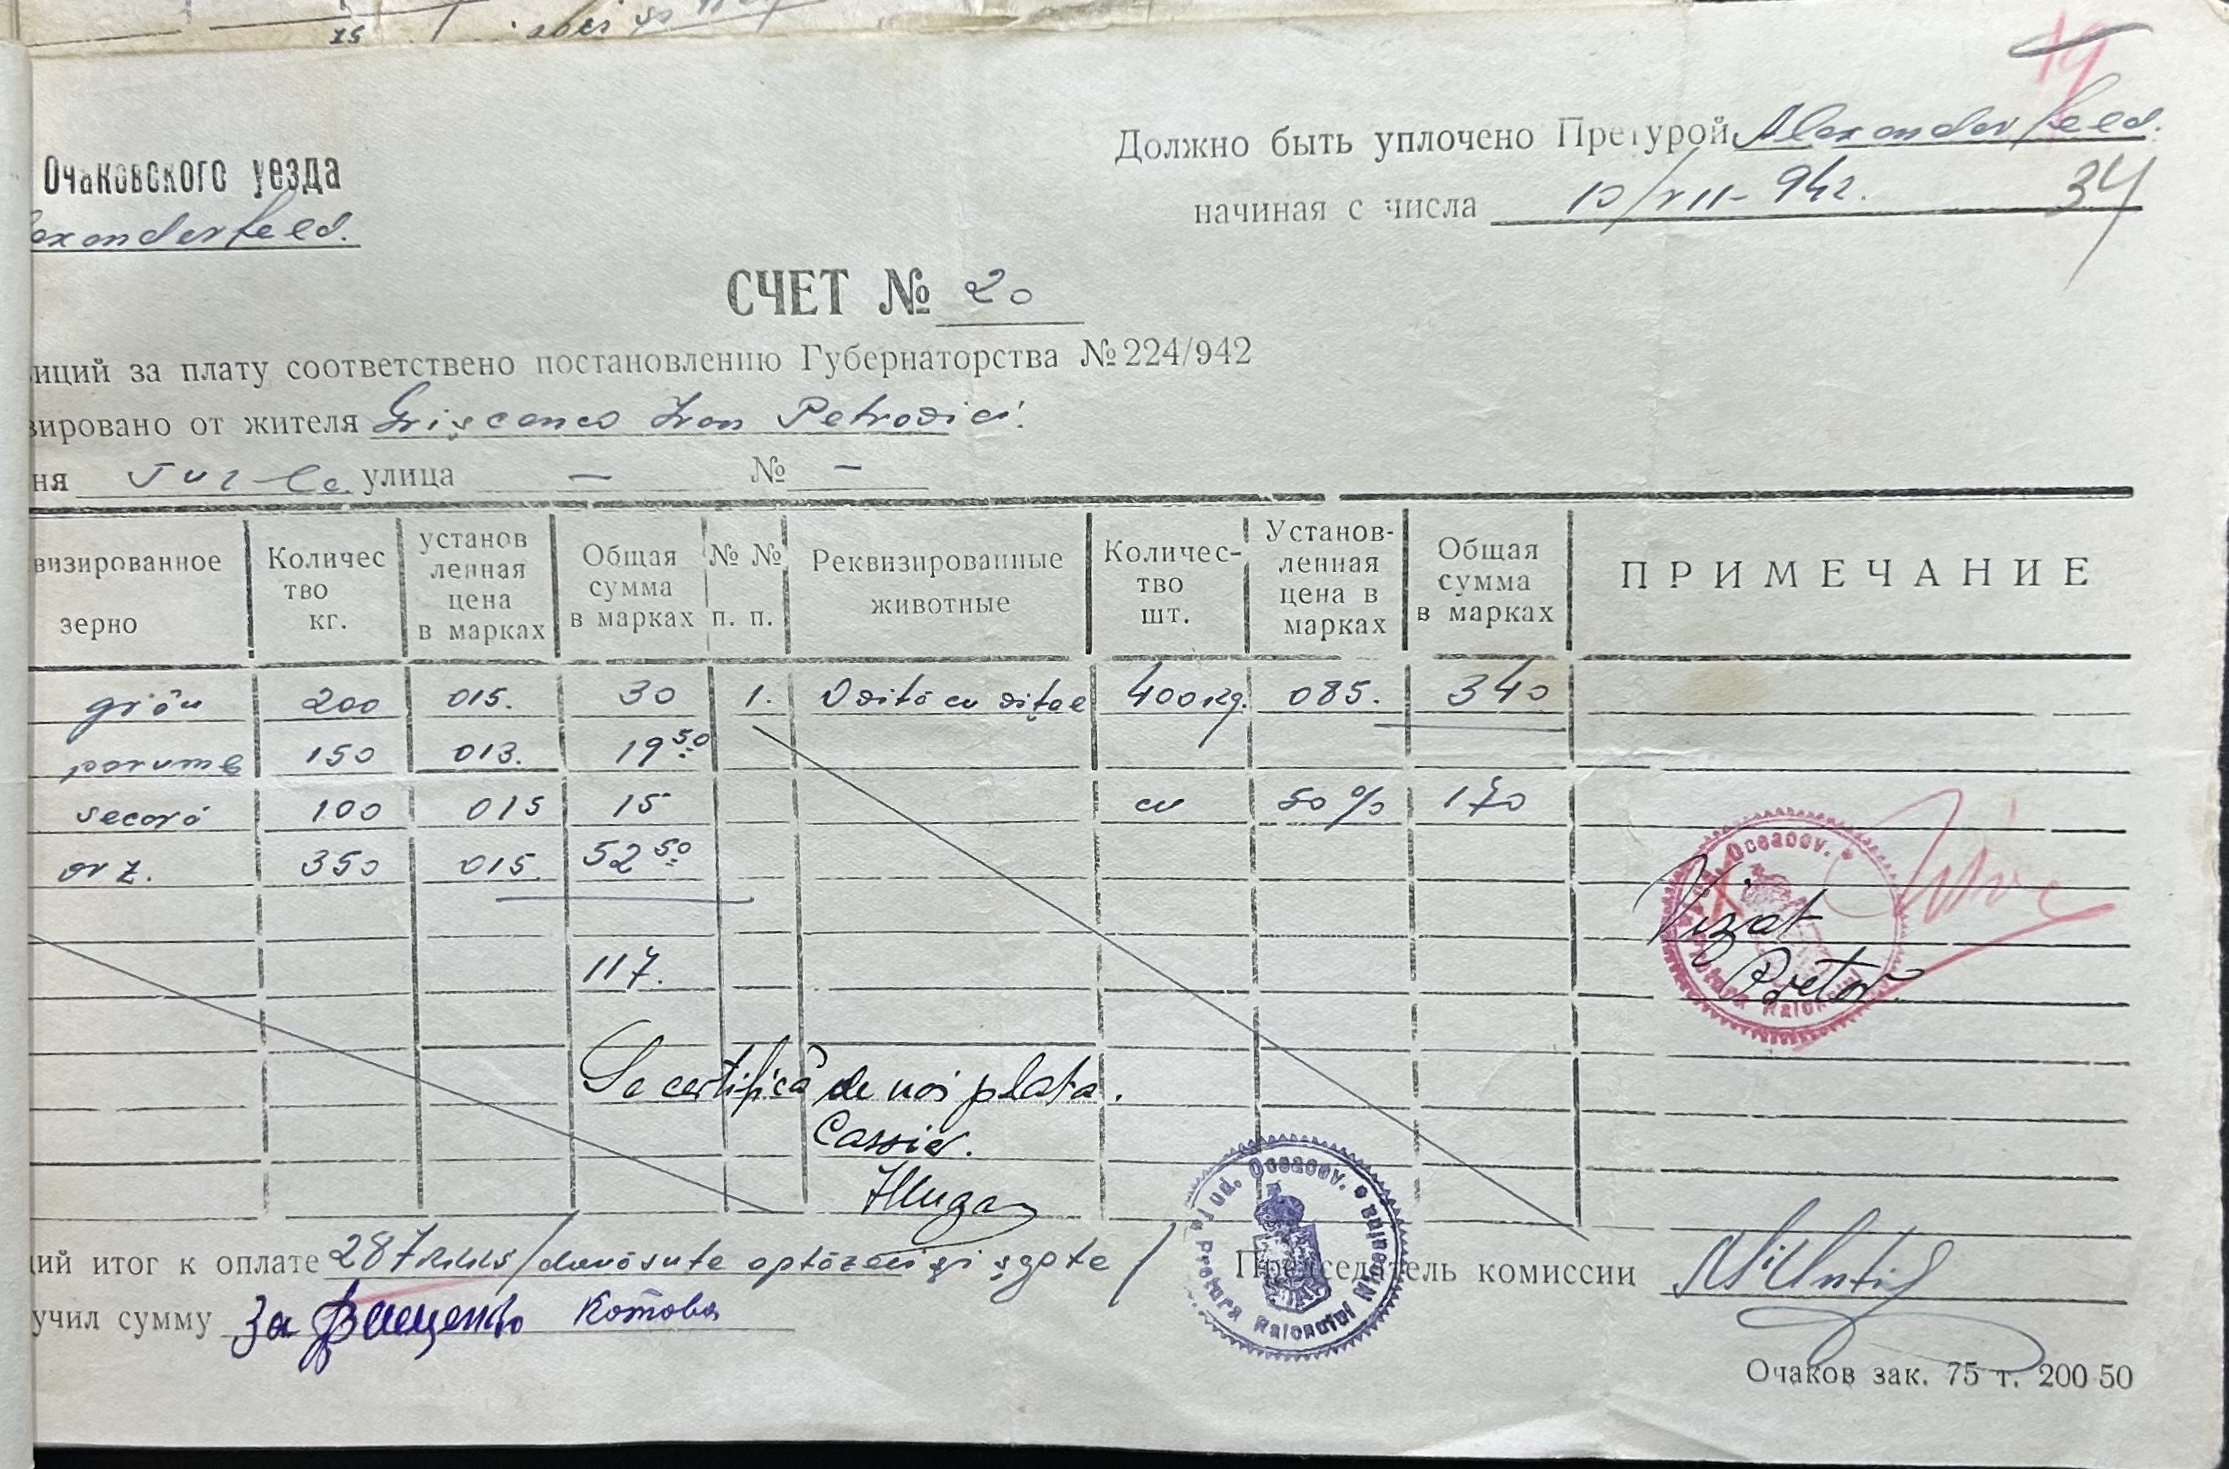 75
19
Очаковского уезда
exanderfeld.
Должно быть уплочено Претурой Alexanderfeld.
начиная с числа 10/VII-942. 34
СЧЕТ № 20
иций за плату соответствено постановлению Губернаторства № 224/942
зировано от жителя Grișcenco Ivan Petrovici.
ня улица — № —
визированное зерно | Количес тво кг. | установ ленная цена в марках | Общая сумма в марках | № № п. п. | Реквизированные животные | Количес- тво шт. | Установ- ленная цена в марках | Общая сумма в марках | ПРИМЕЧАНИЕ
grâu 200 015. 30 1. O vită cu vițel 400 kg. 085. 340
porumb 150 013. 19 50
secară 100 015 15 cu 50% 170
orz. 350 015. 52 50
117.
Vizat
Pretor
Jud. Oceacov. Pretura Raionului
Se certifică de noi plata.
Cassier.
Jud. Oceacov. Pretura Raionului
щий итог к оплате 287 /două sute optăzeci și șapte/ Председатель комиссии
учил сумму За Котова
Очаков зак. 75 т. 200-50